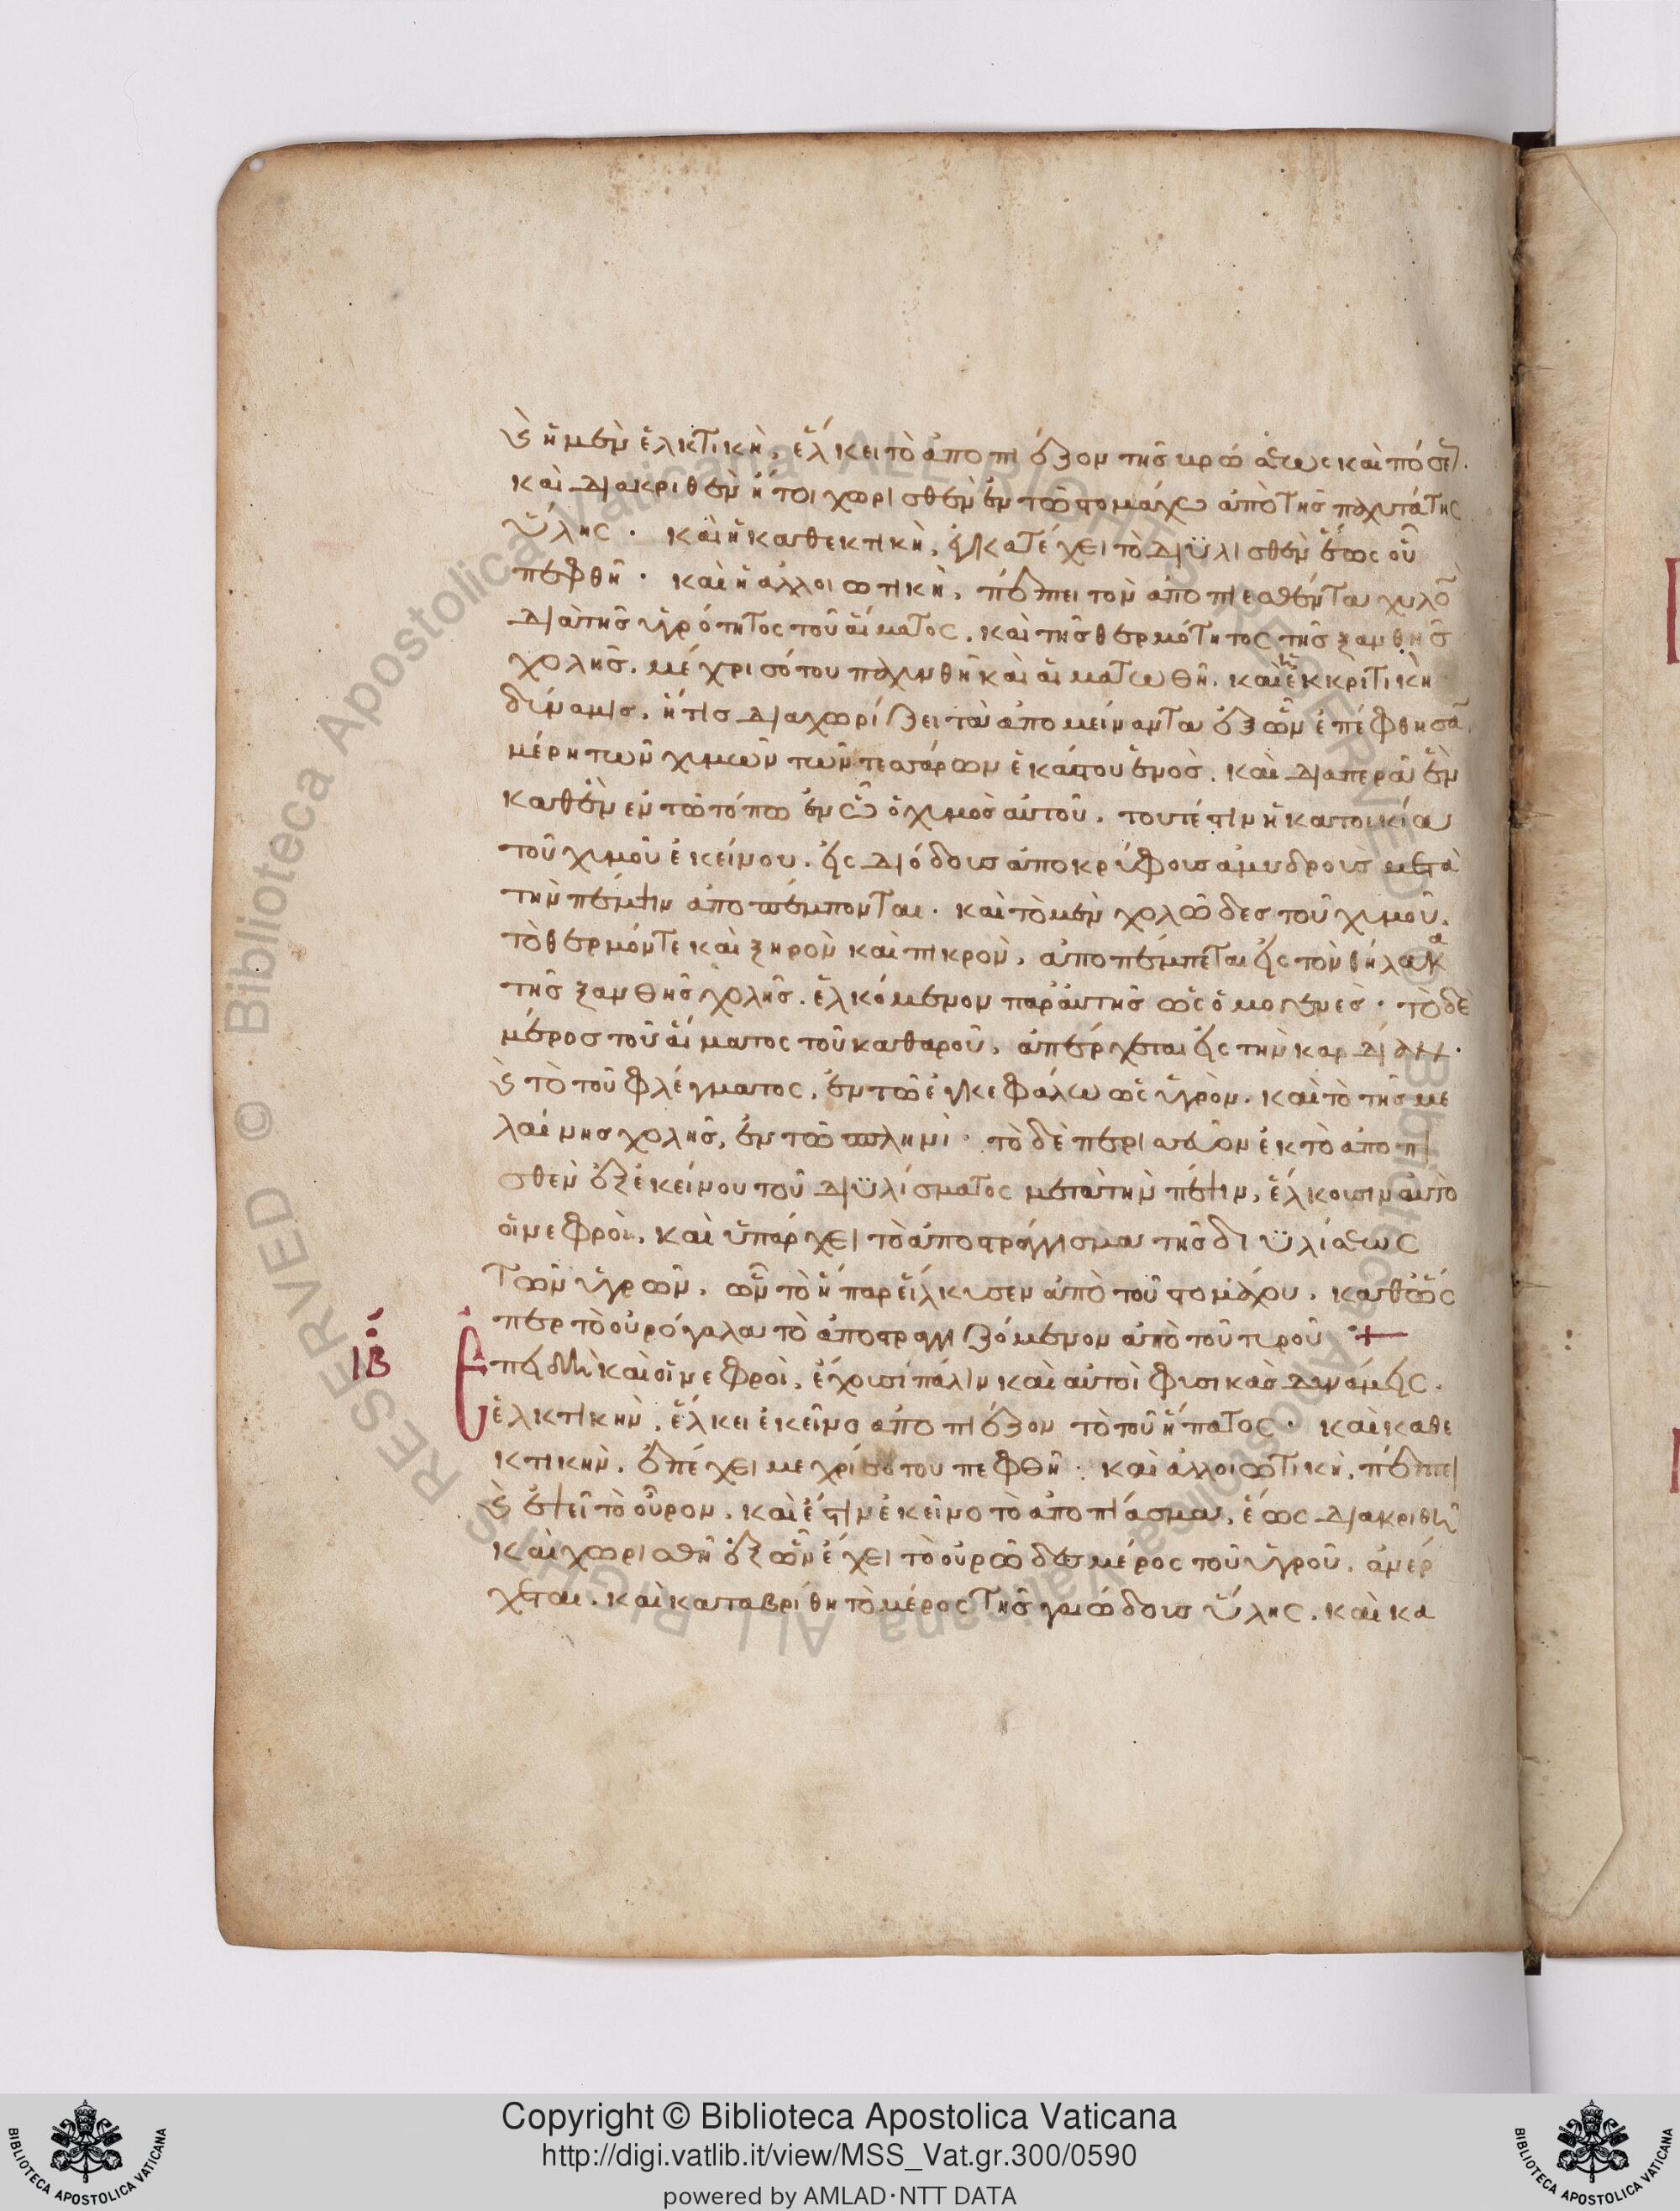 καὶ ἡ μὲν ἑλκτικὴ, ἕλκει τὸ ἀποπιέζον τῆς βρώσεως καὶ πόσεως.
καὶ διακριθὲν ἤτοι χωρισθὲν ἐν τῶ στομάχω ἀπὸ τῆς παχυτάτης
ὕλης. καὶ ἡ καθεκτικὴ, εἰ κατέχει τὸ διϋλισθὲν ἕως οὗ
πεφθῆ. καὶ ἡ ἀλλοιωτικὴ, πέττει τὸν ἀποπιεσθέντα χυλὸν
διὰ τῆς ὑγρότητος τοῦ αἵματος. καὶ τῆς θερμότητος τῆς ξανθῆς
χολῆς. μέχρις ὅτου παχυνθῆ καὶ αἱματωθῆ. καὶ ἡ ἐκκριτικὴ
δύναμις, ἥτις διαχωρίζει τὰ ἀπομείναντα ἐξ ὧν ἐπέφθησαν
μέρη τῶν χυμῶν τῶν τεσσάρων ἑκάστου ἑνὸς. καὶ διαπερᾶ ἓν
καθὲν ἐν τῶ τόπω ἐν ὧ ὁ χυμὸς αὐτοῦ. τουτέστιν ἡ κατοικία
τοῦ χυμοῦ ἐκείνου. εἰς διόδους ἀποκρύφους ἀμυδροὺς μετὰ
τὴν πέψιν ἀποπέμπονται. καὶ τὸ μὲν χολῶδες τοῦ χυμοῦ.
τὸ θερμόν τε καὶ ξηρὸν καὶ πικρὸν, ἀποπέμπεται εἰς τὸν θήλακα
τῆς ξανθῆς χολῆς. ἑλκόμενον παρ' αὐτῆς ὡς ὁμογενὲς. τὸ δὲ
μέρος τοῦ αἵματος τοῦ καθαροῦ, ἀπέρχεται εἰς τὴν καρδίαν.
καὶ τὸ τοῦ φλέγματος, ἐν τῶ ἐγκεφάλω ὡς ὑγρὸν. καὶ τὸ τῆς με
λαίνης χολῆς, ἐν τῶ σπληνὶ. τὸ δὲ περισσὸν ἐκ τὸ ἀποπι
σθὲν ἐξ ἐκείνου τοῦ διϋλίσματος μετὰ τὴν πέψιν, ἕλκουσιν αὐτὸ
οἱ νεφροὶ, καὶ ὑπάρχει τὸ ἀποστράγγισμα τῆς διϋλίσεως
τῶν ὑγρῶν. ὧν τὸ ἧπαρ εἵλκυσεν ἀπὸ τοῦ στομάχου. καθὼς
περ τὸ οὐρόγαλα τὸ ἀποστραγγιζόμενον ἀπὸ τοῦ τυροῦ +
ιβ Ἐπειδὴ καὶ οἱ νεφροὶ, ἔχουσι πάλιν καὶ αὐτοὶ φυσικὰς δυνάμεις.
ἑλκτικὴν, ἕλκει ἐκεῖνο ἀποπιέζον τὸ τοῦ ἥπατος. καὶ καθε
κτικὴν. ἐπέχει μεχρίσοτου πεφθῆ. καὶ ἀλλοιωτικὴ, πέττει
καὶ ἕψει τὸ οὖρον. καὶ ἔστιν ἐκεῖνο τὸ ἀποπίασμα, ἕως διακριθῆ
καὶ χωρισθῆ ἐξ ὧν ἔχει τὸ οὐρῶδες μέρος τοῦ ὑγροῦ. ἀνέρ
χεται. καὶ καταβρίθη τὸ μέρος τῆς γαιώδους ὕλης. καὶ κα
Copyright © Biblioteca Apostolica Vaticana
http://digi.vatlib.it/view/MSS_Vat.gr.300/0590
powered by AMLAD·NTT DATA